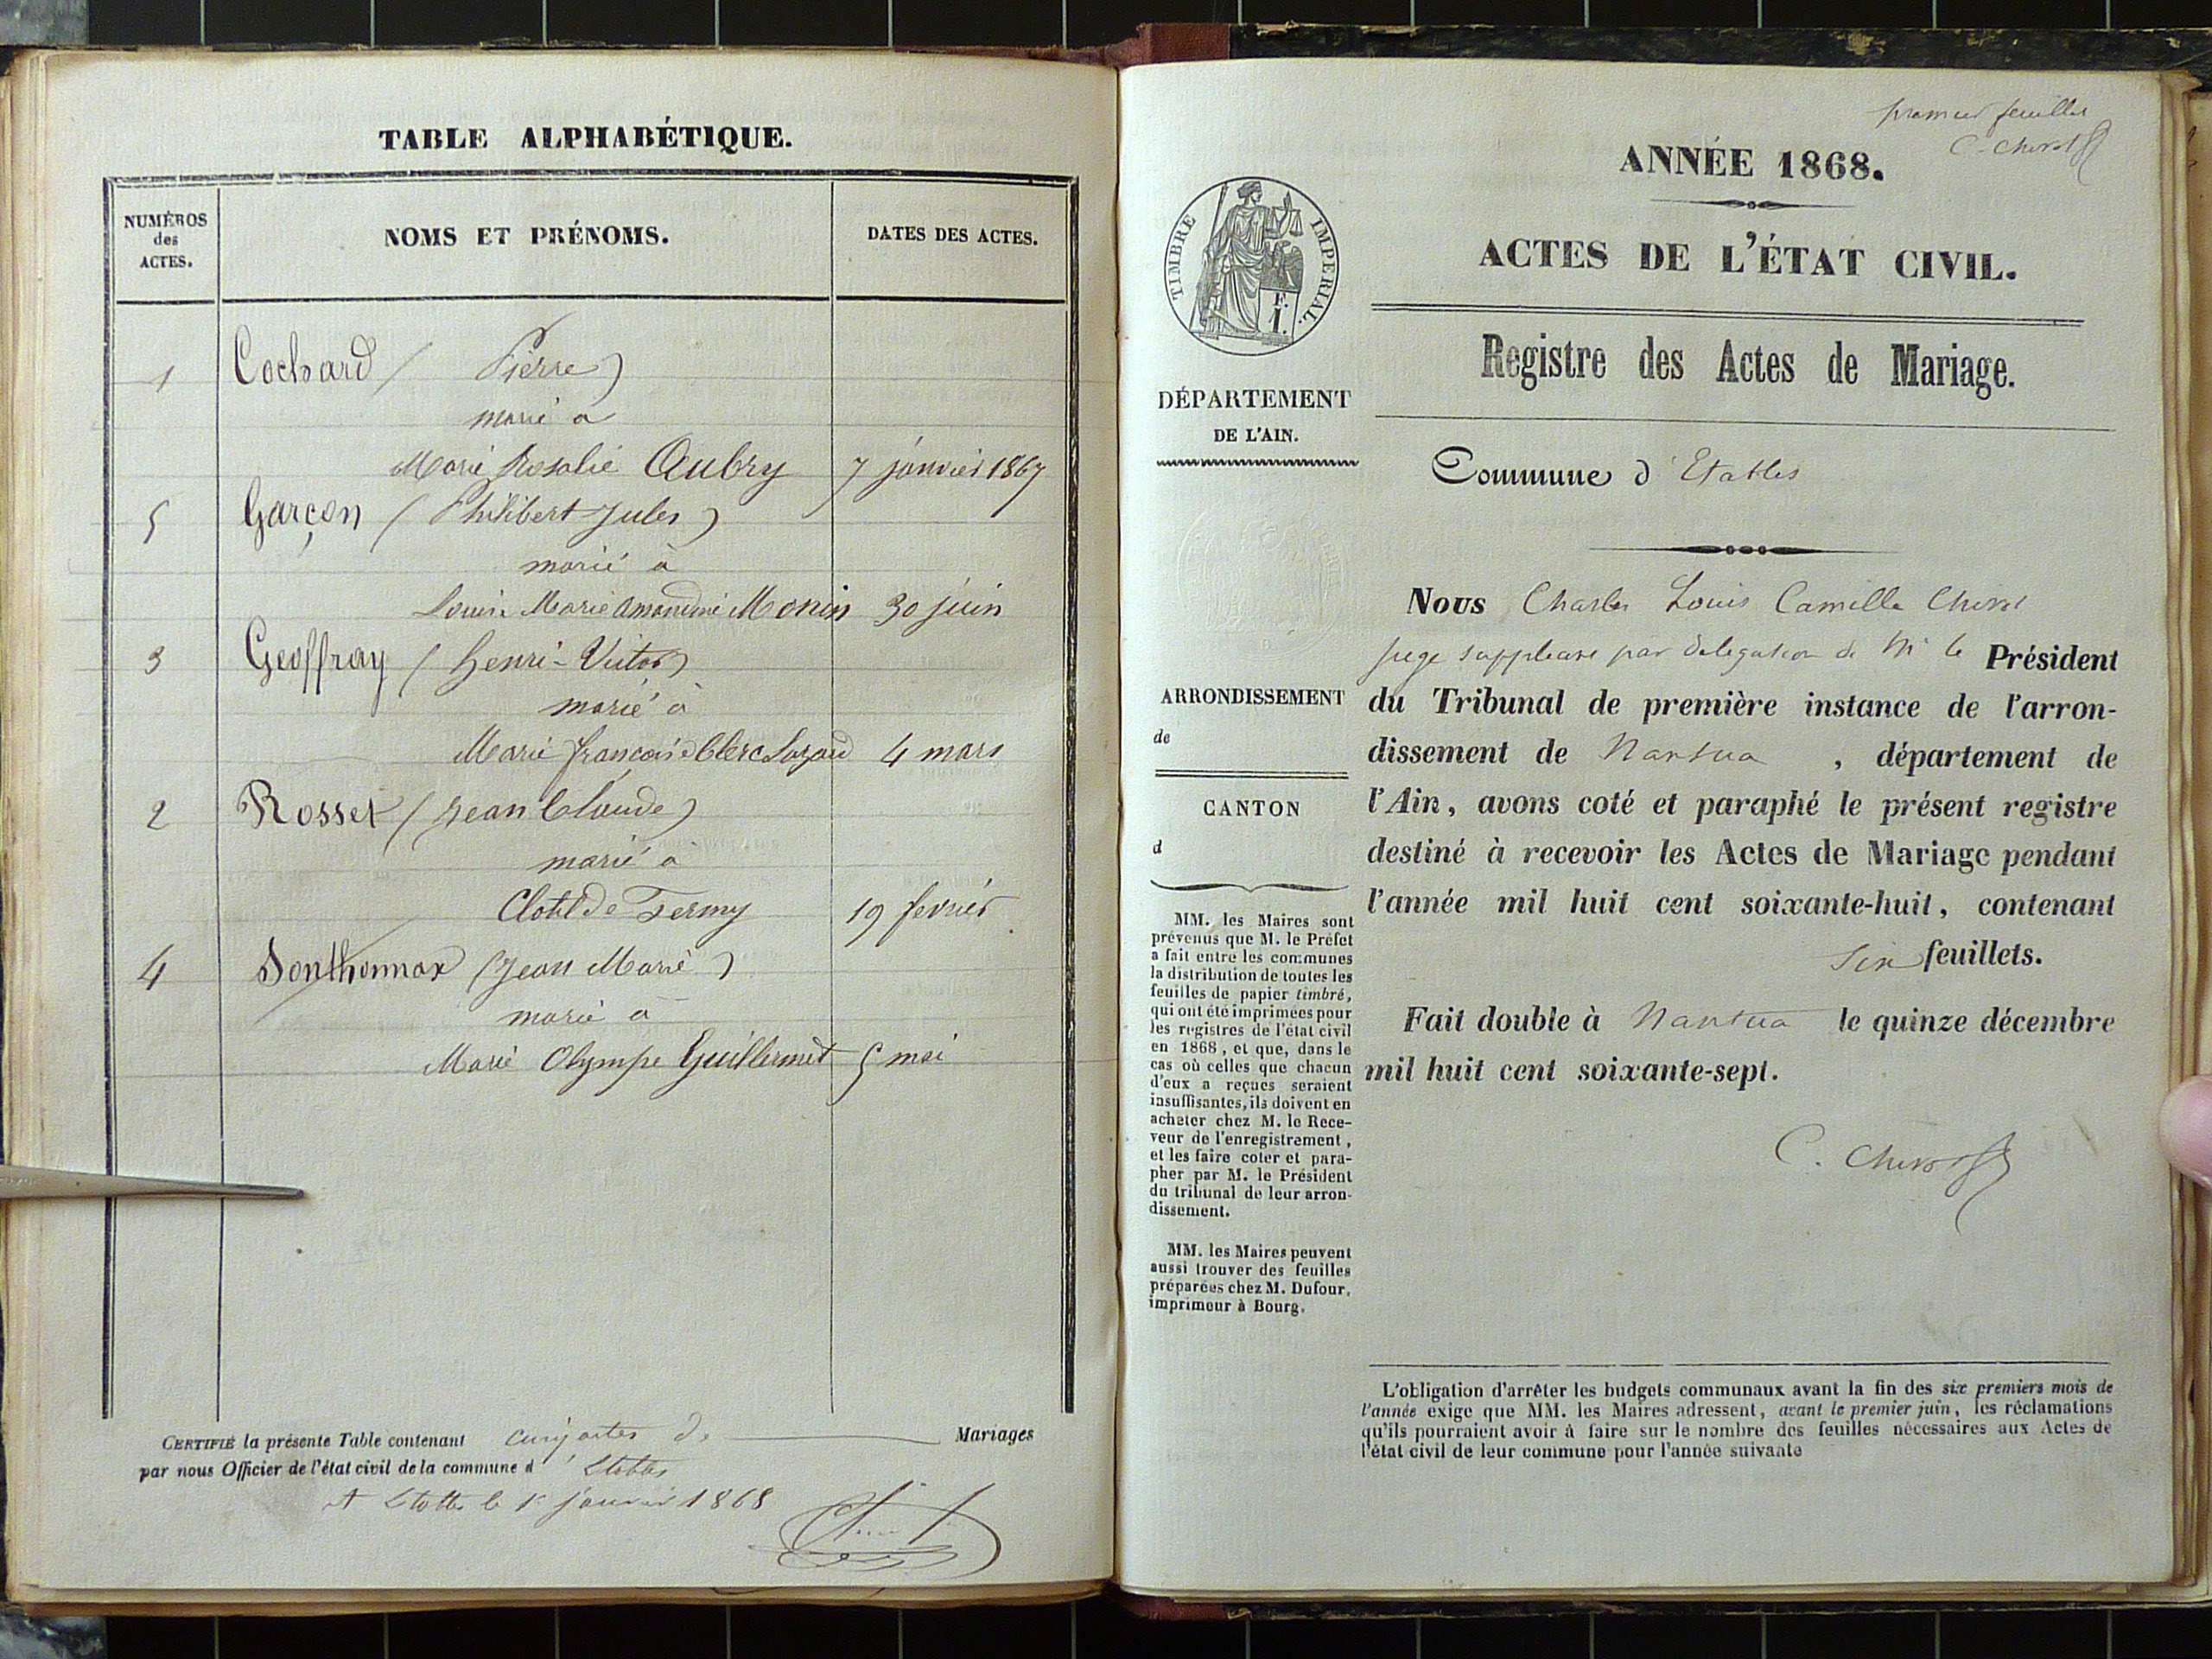 TABLE ALPHABÉTIQUE.
NUMÉROS
des
ACTES.
NOMS ET PRÉNOMS.
DATES DES ACTES.
1 Cochard (Pierre)
marié a
Marie Rosalie Aubry 7 janvier 1867
5 Garçon (Philibert Jules)
marié à
Louise Marie Amandine Monin 30 juin
3 Geoffray (henri-Victor)
marié à
Marie françoise Clerc Lazard 4 mars
2 Rosset (Jean Claude)
marié a
Clotilde Termy 19 fevrier
4 Sonthonnax (Jean Marie)
marié a
Marie Olympe Guillermet 5 mai
CERTIFIÉ la présente Table contenant cinq actes de Mariages
par nous Officier de l'état civil de la commune d' Etables
A Etables le 1er janvier 1868
premier feuillet
C. Chevrot
ANNÉE 1868.
ACTES DE L'ÉTAT CIVIL.
TIMBRE IMPÉRIAL.
F.
I.
Registre des Actes de Mariage.
DÉPARTEMENT
DE L'AIN.
Commune d'Etables
Nous Charles Louis Camille
juge suppléant par délégation de Mr le Président
du Tribunal de première instance de l'arron-
dissement de Nantua , département de
l'Ain, avons coté et paraphé le présent registre
destiné à recevoir les Actes de Mariage pendant
l'année mil huit cent soixante-huit, contenant
Six feuillets.
Fait double à Nantua le quinze décembre
mil huit cent soixante-sept.
C. Chevrot
ARRONDISSEMENT
de
CANTON
d
MM. les Maires sont
prévenus que M. le Préfet
a fait entre les communes
la distribution de toutes les
feuilles de papier timbré,
qui ont été imprimées pour
les registres de l'état civil
en 1868, et que, dans le
cas où celles que chacun
d'eux a reçues seraient
insuffisantes, ils doivent en
acheter chez M. le Rece-
veur de l'enregistrement,
et les faire coter et para-
pher par M. le Président
du tribunal de leur arron-
dissement.
MM. les Maires peuvent
aussi trouver des feuilles
préparées chez M. Dufour,
imprimeur à Bourg.
L'obligation d'arrêter les budgets communaux avant la fin des six premiers mois de
l'année exige que MM. les Maires adressent, avant le premier juin, les réclamations
qu'ils pourraient avoir à faire sur le nombre des feuilles nécessaires aux Actes de
l'état civil de leur commune pour l'année suivante